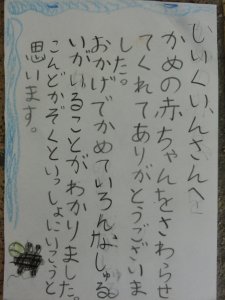 しいくいんさんへ
かめの赤ちゃんをさわらせ
てくれてありがとうございま
した。
おかげでかめていろんなしゅるい
いがいることがわかりました。
こんどかぞくといっしょにいこうと
思います。